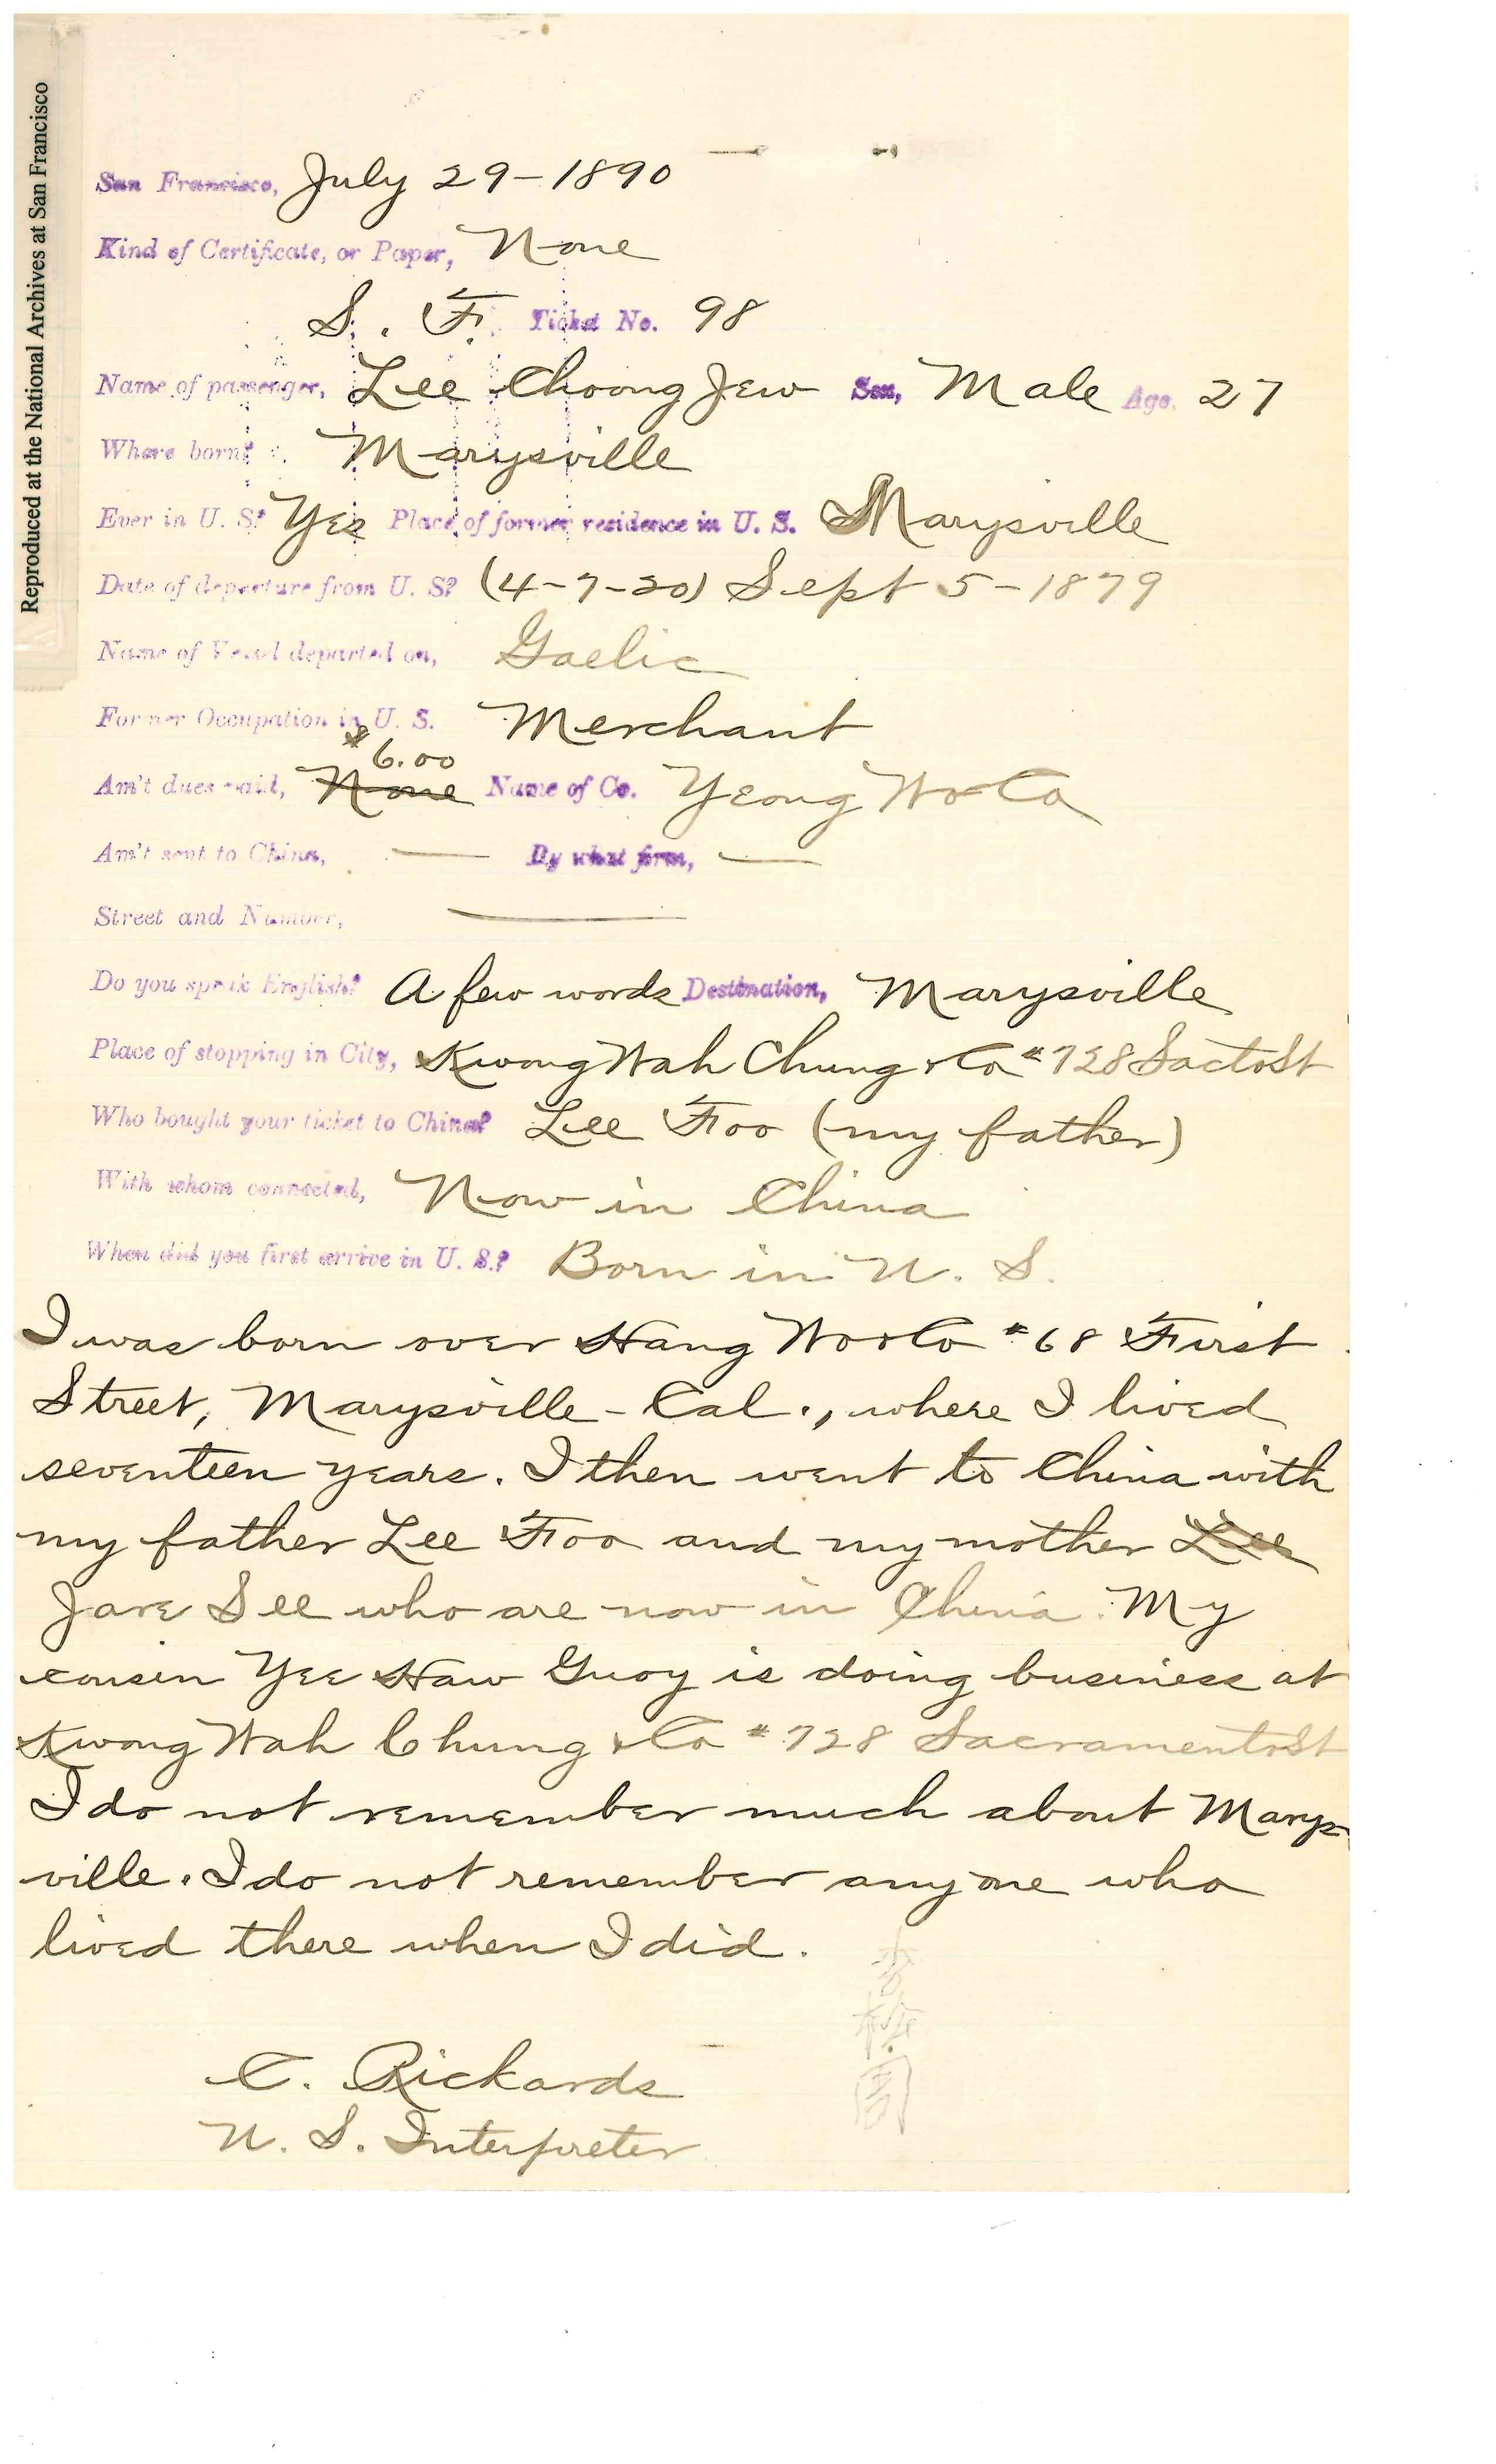 Reproduced at the National Archives at San Francisco
San Francisco, July 29-1890
Kind of Certificate, or Paper, None
S. F. Ticket No. 98
Name of passenger, Lee Choong Jew Sex, Male Age, 27
Where born? Marysville
Ever in U. S? Yes Place of former residence in U. S. Marysville
Date of departure from U. S? (4-7-20) Sept 5-1879
Name of Vessel departed on, Gaelic
Former Occupation in U. S. Merchant
$6.00
Am't dues paid, None Name of Co. Yeong Wo Co
Am't sent to China, — By what firm, —
Street and Number, —
Do you speak English? A few words Destination, Marysville
Place of stopping in City, Kwong Wah Chung & Co #728 Sacto St
Who bought your ticket to China? Lee Foo (my father)
With whom connected, Now in China
When did you first arrive in U. S.? Born in U. S.
I was born over Hang Wo & Co #68 First
Street, Marysville-Cal., where I lived
seventeen years. I then went to China with
my father Lee Foo and my mother Lee
Jare See who are now in China. My
cousin Yee Haw Guoy is doing business at
Kwong Wah Chung & Co #728 Sacramento St
I do not remember much about Marys-
ville. I do not remember anyone who
lived there when I did.
C. Rickards
U. S. Interpreter